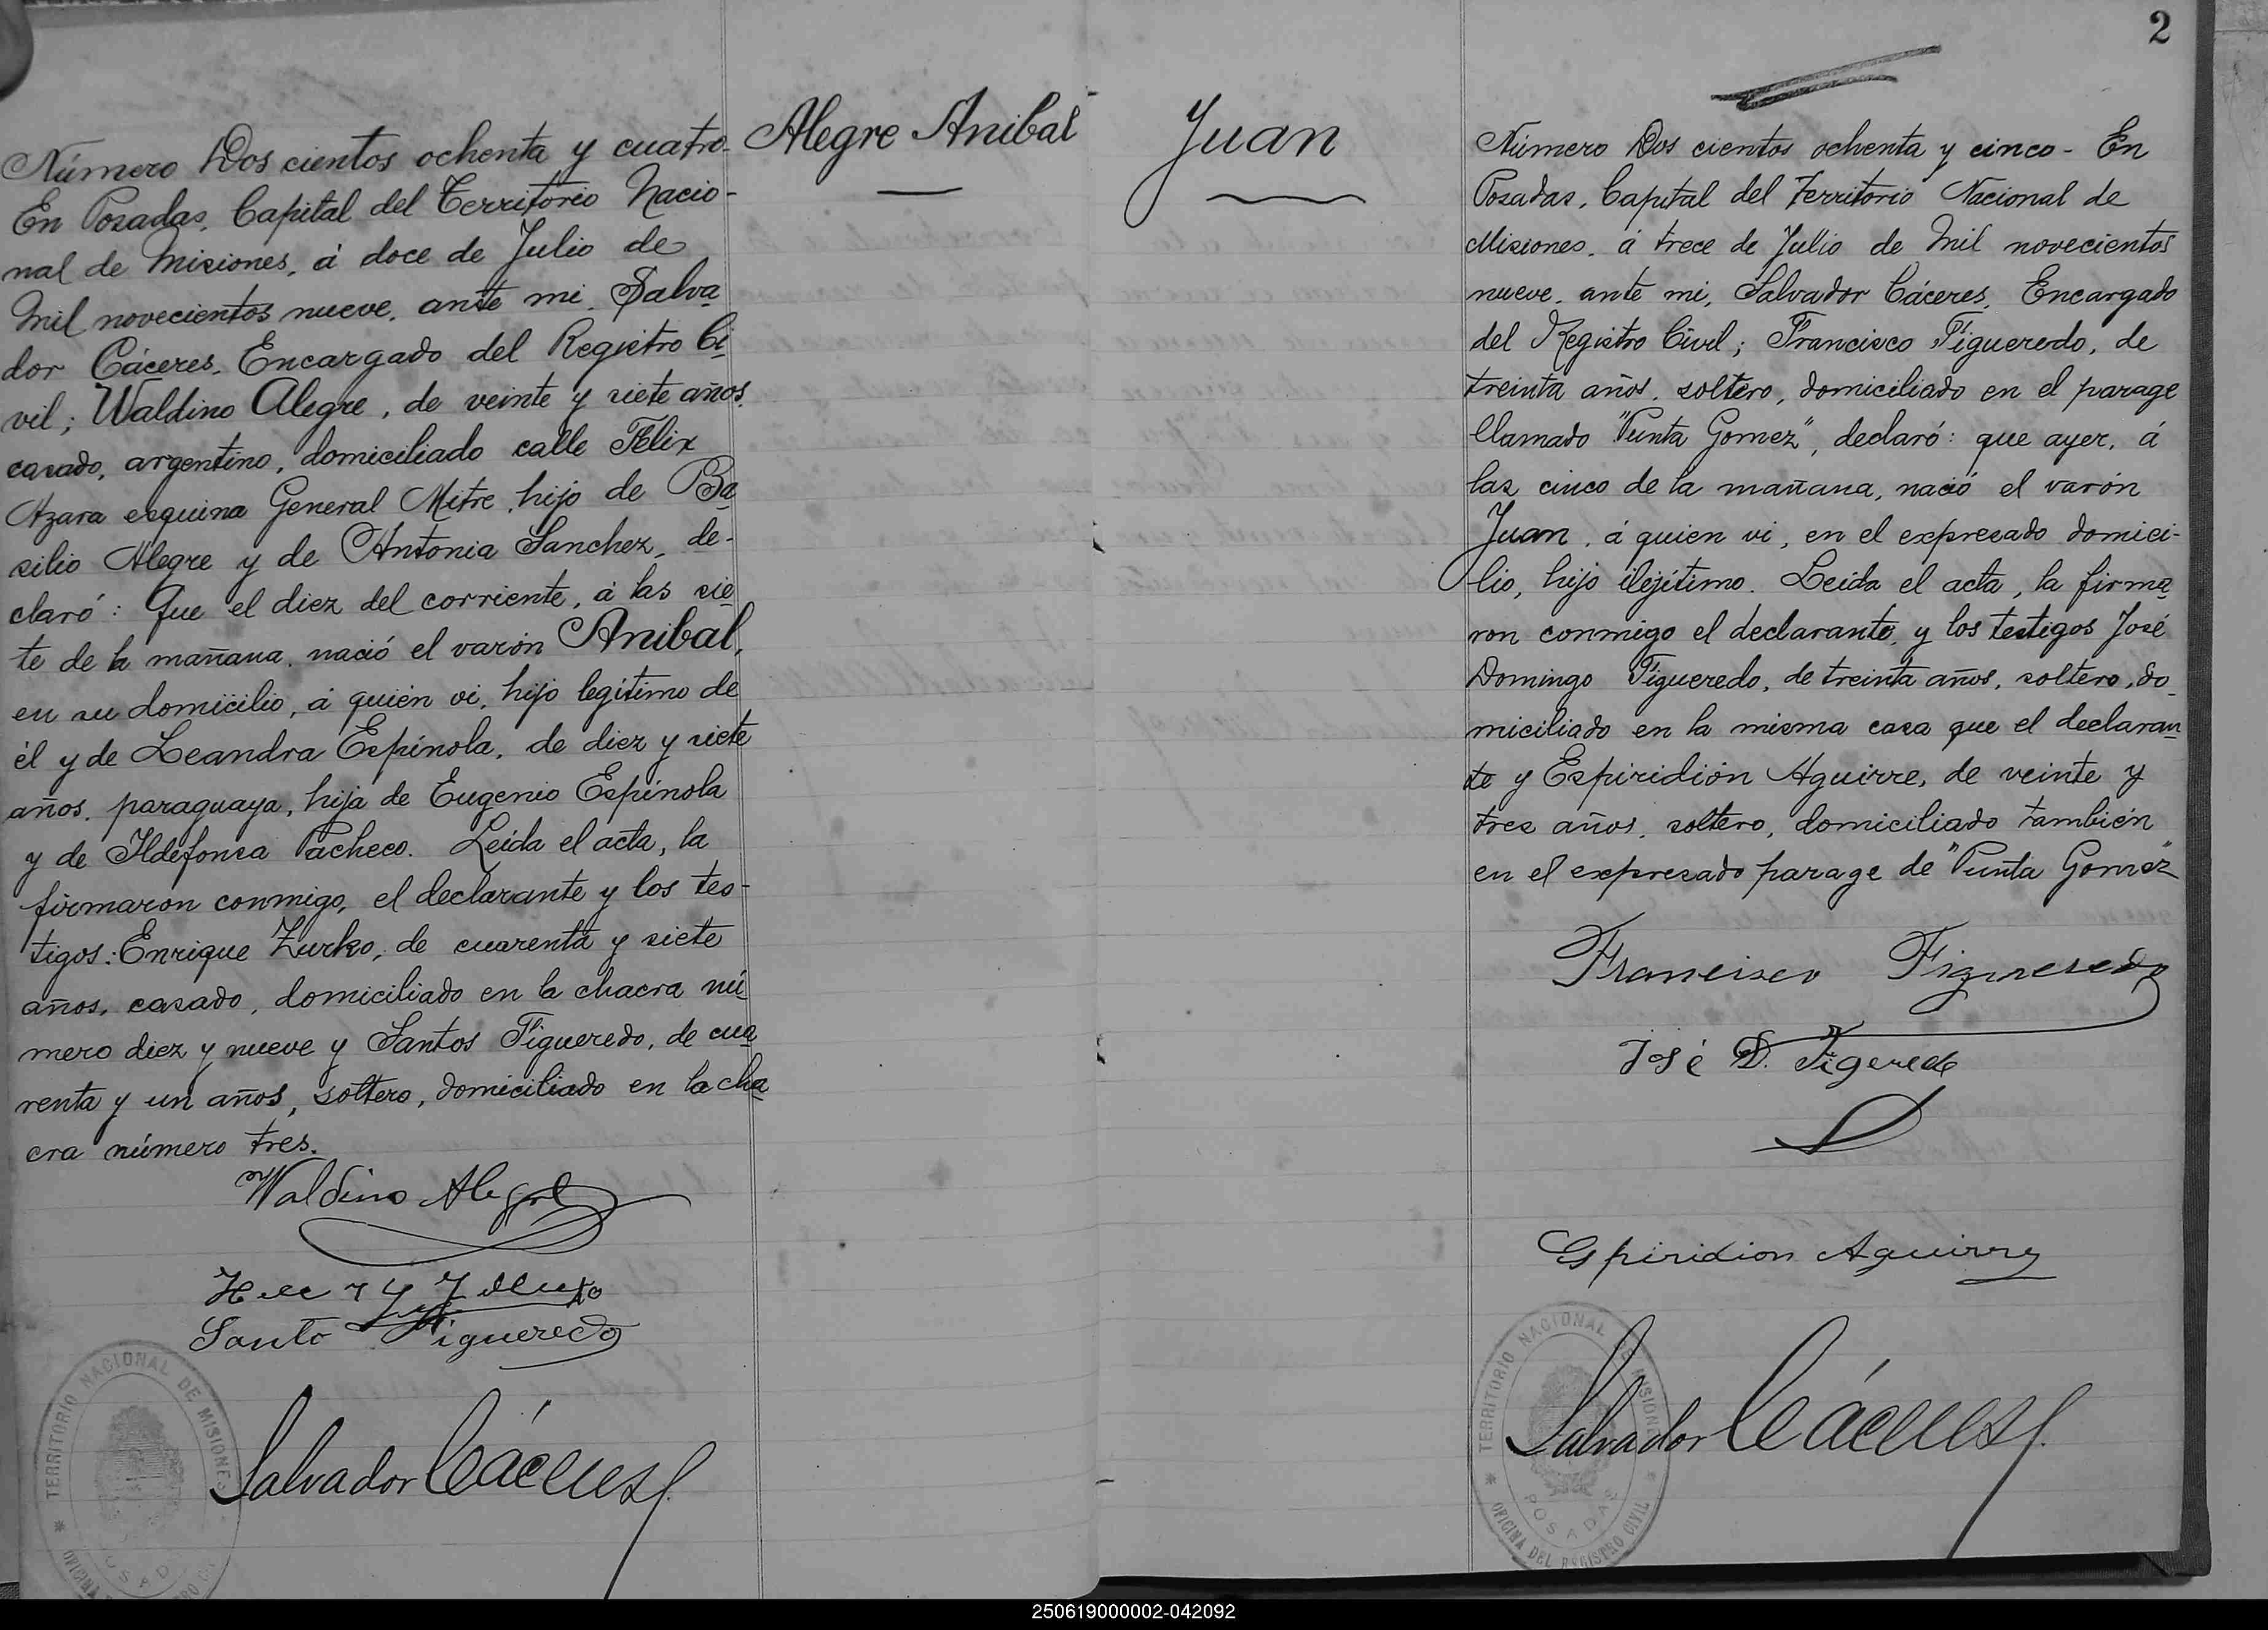 Número Dos cientos ochenta y cuatro-
En Posadas, Capital del Territorio Nacio-
nal de Misiones, á doce de Julio de
Mil novecientos nueve, ante mi, Salva
dor Cáceres, Encargado del Registro Ci
vil; Waldino Alegre, de veinte y siete años,
casado, argentino, domiciliado calle Felix
Azara esquina General Mitre, hijo de Ba
silio Alegre y de Antonia Sanchez, de-
claró: Que el diez del corriente, á las sie
te de la mañana, nació el varón Anibal,
en su domicilio, á quién vi, hijo legítimo de
él y de Leandra Espínola, de diez y siete
años, paraguaya, hija de Eugenio Espínola
y de Ildefonsa Pacheco. Leida el acta, la
firmaron conmigo, el declarante y los tes-
tigos: Enrique Zurko, de cuarenta y siete
años, casado, domiciliado en la chacra nú
mero diez y nueve y Santos Figueredo, de cua
renta y un años, soltero, domiciliado en la cha
cra número tres.
Waldino Alegre
Santo Figueredo
Salvador Cáceres
TERRITORIO NACIONAL DE MISIONES
Alegre Anibal
Juan
2
Número Dos cientos ochenta y cinco- En
Posadas, Capital del Territorio Nacional de
Misiones, á trece de Julio de Mil novecientos
nueve, ante mi, Salvador Cáceres, Encargado
del Registro Civil; Francisco Figueredo, de
treinta años, soltero, domiciliado en el parage
llamado "Punta Gomez", declaró: que ayer, á
las cinco de la mañana, nació el varón
Juan, á quien vi, en el expresado domici-
lio, hijo ilejítimo. Leida el acta, la firma
ron conmigo el declarante, y los testigos José
Domingo Figueredo, de treinta años, soltero, do
miciliado en la misma casa que el declaran
te y Espiridión Aguirre, de veinte y
tres años, soltero, domiciliado también
en el expresado parage de "Punta Gomez"
Francisco Figueredo
José D. Figeredo
Espiridion Aguirre
Salvador Cáceres
TERRITORIO NACIONAL DE MISIONES
POSADAS
OFICINA DEL REGISTRO CIVIL
250619000002-042092